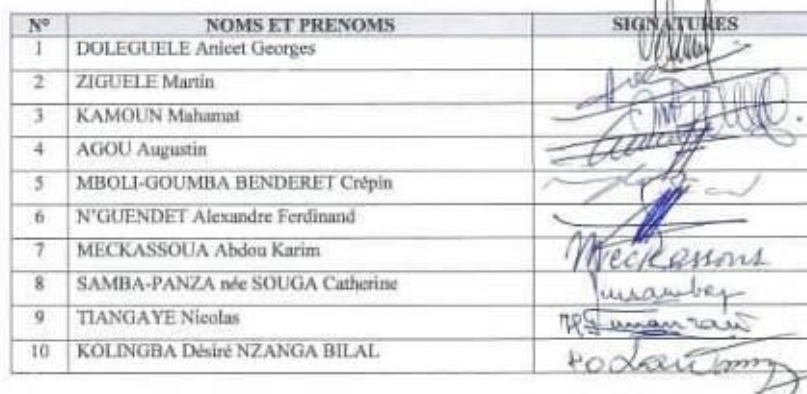 N° NOMS ET PRENOMS SIGNATURES
1 DOLEGUELE Anicet Georges
2 ZIGUELE Martin
3 KAMOUN Mahamat
4 AGOU Augustin
5 MBOLI-GOUMBA BENDERET Crépin
6 N'GUENDET Alexandre Ferdinand
7 MECKASSOUA Abdou Karim Meckassoua
8 SAMBA-PANZA née SOUGA Catherine
9 TIANGAYE Nicolas
10 KOLINGBA Désiré NZANGA BILAL